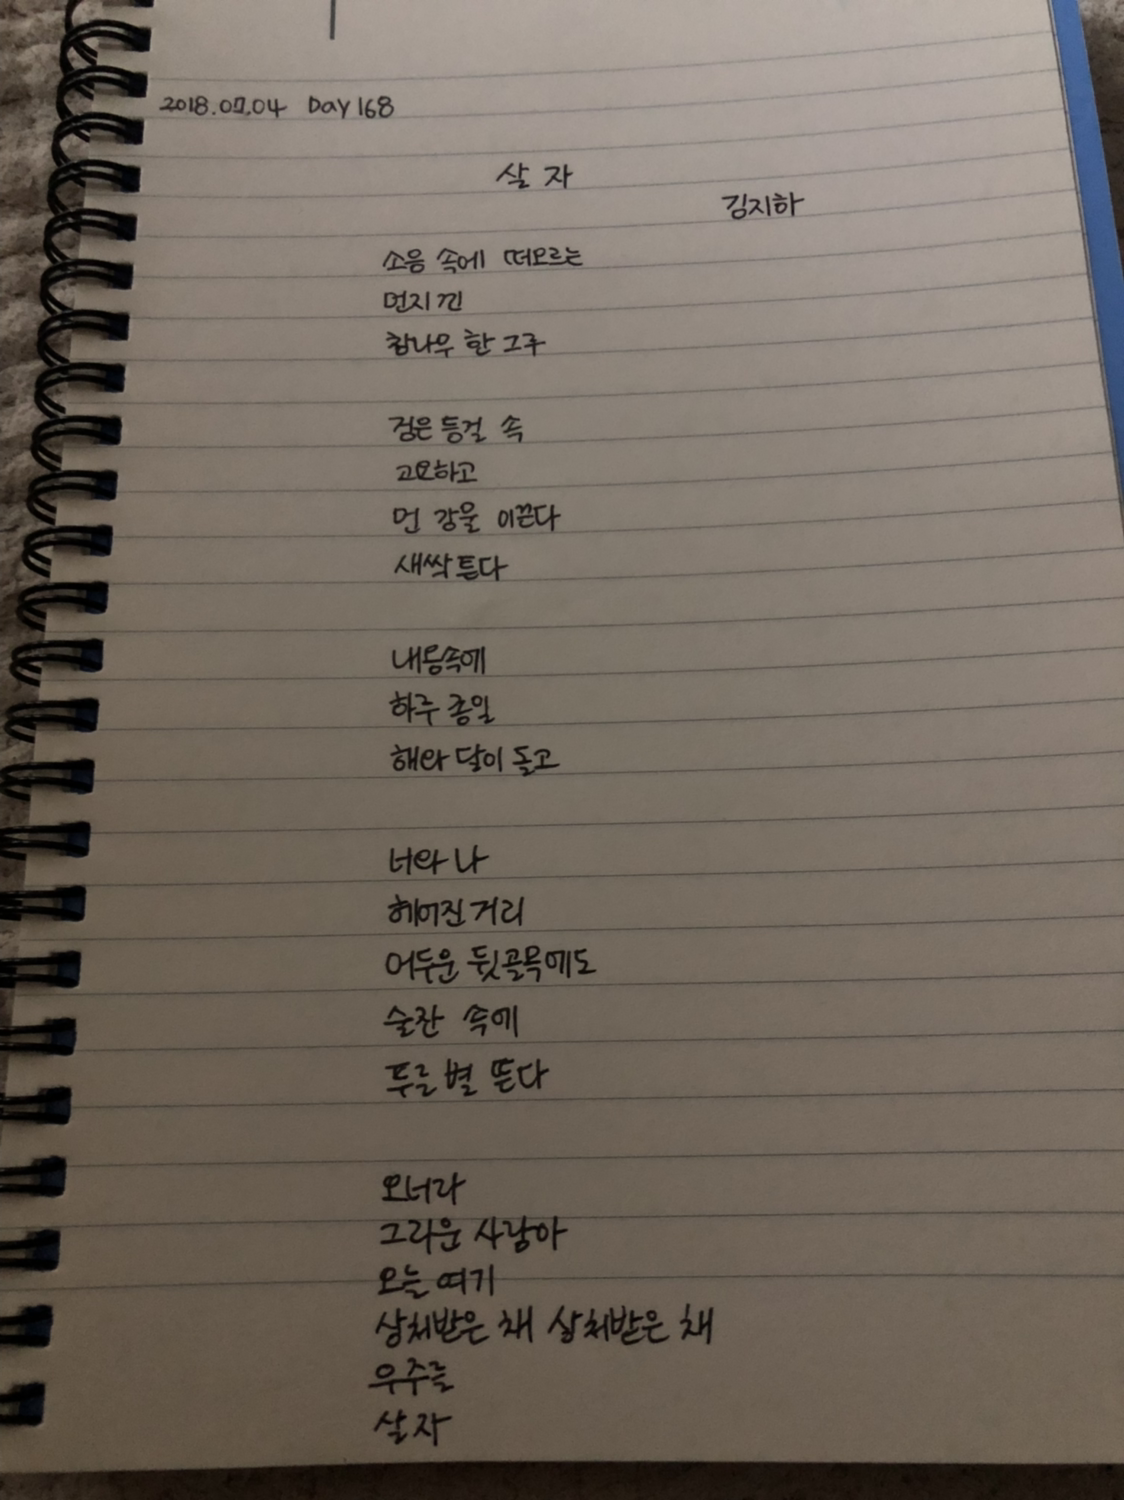 2018.07.04 Day 168
살 자
김지하
소음 속에 떠오르는
먼지 낀
참나무 한 그루
검은 등걸 속
고요하고
먼 강물 이끈다
새싹튼다
내몸속에
하루 종일
해와 달이 돌고
너와 나
헤어진 거리
어두운 뒷골목에도
술잔 속에
푸른 별 뜬다
오너라
그리운 사랑아
오늘 여기
상처받은 채 상처받은 채
우주를
살자